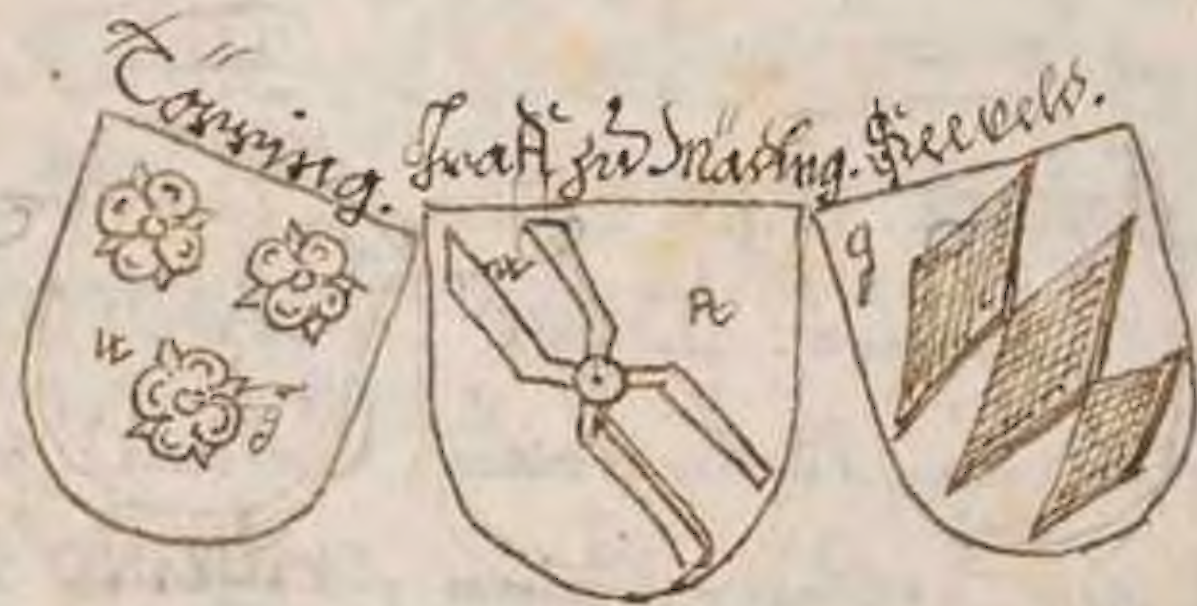 Törring. Graff zu Märling. Seeveld.
w
g
w
R
g